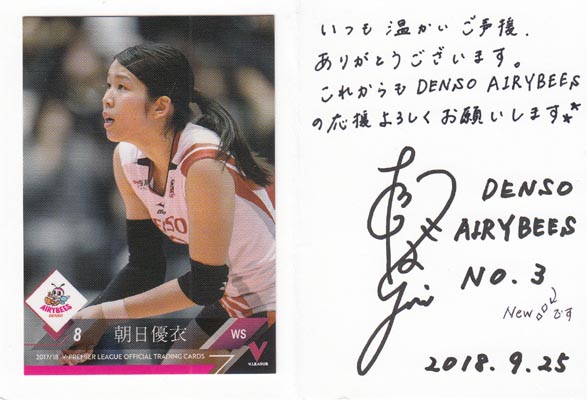 DENSO
AIRYBEES
DENSO
8
朝日優衣
WS
2017/18 V・PREMIER LEAGUE OFFICIAL TRADING CARDS
V.LEAGUE
いつも温かいご声援、
ありがとうございます。
これからもDENSO AIRYBEES
の応援よろしくお願いします
DENSO
AIRYBEES
NO.3
Newです
2018.9.25